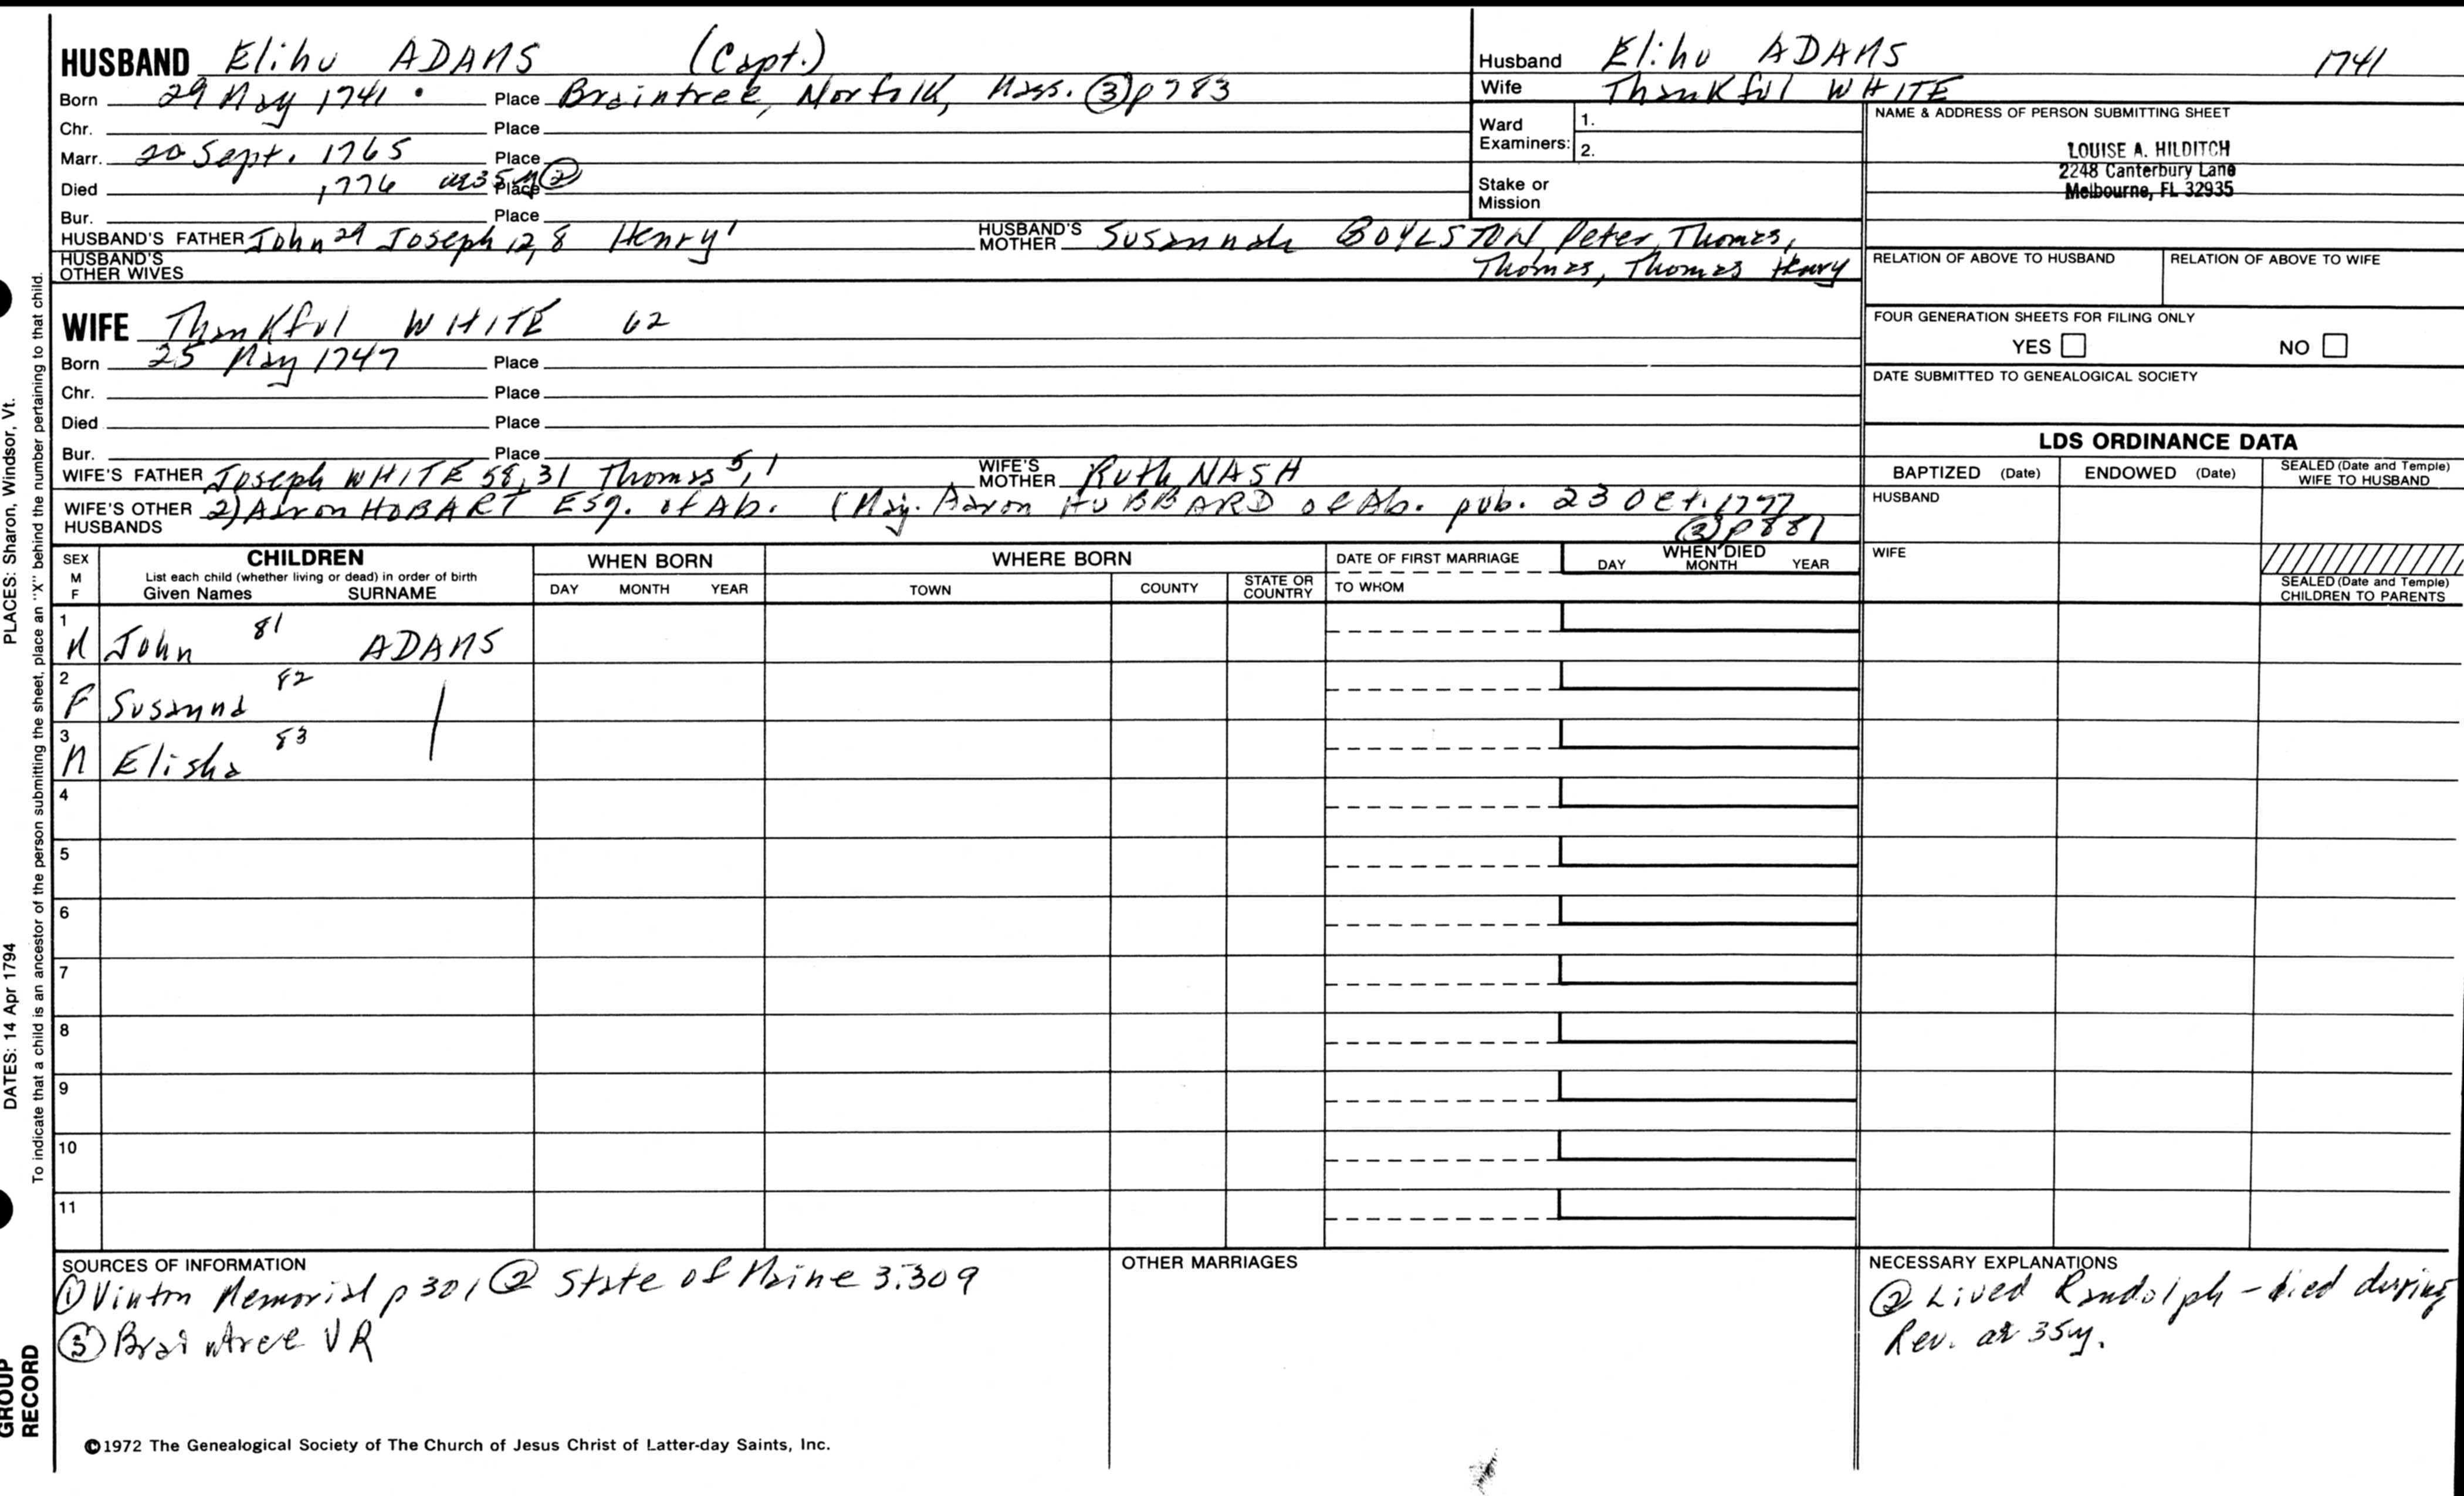 HUSBAND Elihu ADAMS (Capt.)
Born 29 May 1741 Place Braintree, Norfolk, Mass. ③ p783
Chr. Place
Marr. 20 Sept. 1765 Place
Died 1776 ae 35y ② Place
Bur. Place
HUSBAND'S FATHER John 29 Joseph 12, 8 Henry 1 HUSBAND'S MOTHER Susannah BOYLSTON, Peter, Thomas,
HUSBAND'S OTHER WIVES Thomas, Thomas Henry
WIFE Thankful WHITE 62
Born 25 May 1747 Place
Chr. Place
Died Place
Bur. Place
WIFE'S FATHER Joseph WHITE 58, 31 Thomas 5, 1 WIFE'S MOTHER Ruth NASH
WIFE'S OTHER HUSBANDS 2) Aaron HOBART Esq. of Ab. (Maj. Aaron HUBBARD of Ab. pub. 23 Oct. 1777
③ p881
Husband Elihu ADAMS 1741
Wife Thankful WHITE
Ward Examiners: 1.
2.
Stake or Mission
NAME & ADDRESS OF PERSON SUBMITTING SHEET
LOUISE A. HILDITCH
2248 Canterbury Lane
Melbourne, FL 32935
RELATION OF ABOVE TO HUSBAND RELATION OF ABOVE TO WIFE
FOUR GENERATION SHEETS FOR FILING ONLY
YES NO
DATE SUBMITTED TO GENEALOGICAL SOCIETY
LDS ORDINANCE DATA
BAPTIZED (Date) ENDOWED (Date) SEALED (Date and Temple) WIFE TO HUSBAND
HUSBAND
WIFE
SEALED (Date and Temple) CHILDREN TO PARENTS
SEX M F
CHILDREN
List each child (whether living or dead) in order of birth
Given Names SURNAME
WHEN BORN
DAY MONTH YEAR
WHERE BORN
TOWN COUNTY STATE OR COUNTRY
DATE OF FIRST MARRIAGE
TO WHOM
WHEN DIED
DAY MONTH YEAR
1 M John 81 ADAMS
2 F Susanna 82
3 M Elisha 83
4
5
6
7
8
9
10
11
SOURCES OF INFORMATION
① Vinton Memorial p 301 ② State of Maine 3:309
③ Braintree VR
OTHER MARRIAGES
NECESSARY EXPLANATIONS
② Lived Randolph - died during
Rev. ae 35y.
©1972 The Genealogical Society of The Church of Jesus Christ of Latter-day Saints, Inc.
PLACES: Sharon, Windsor, Vt.
DATES: 14 Apr 1794
To indicate that a child is an ancestor of the person submitting the sheet, place an "X" behind the number pertaining to that child.
GROUP
RECORD